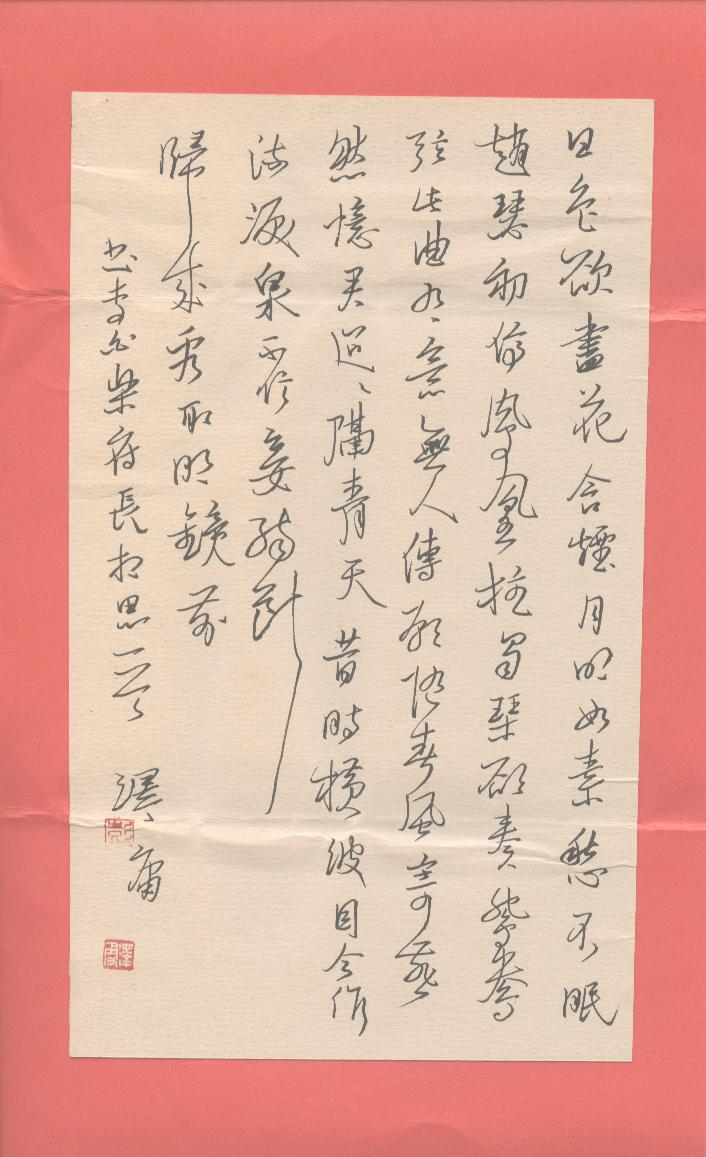 日色欲盡花含煙月明如素愁不眠
趙瑟初停鳳凰柱蜀琴欲奏鴛鴦
弦此曲有意無人傳願隨春風寄燕
然憶君迢〻隔青天昔時橫波目今作
流淚泉不信妾腸斷
歸來看取明鏡前
书李白樂府長相思一首 澤庸